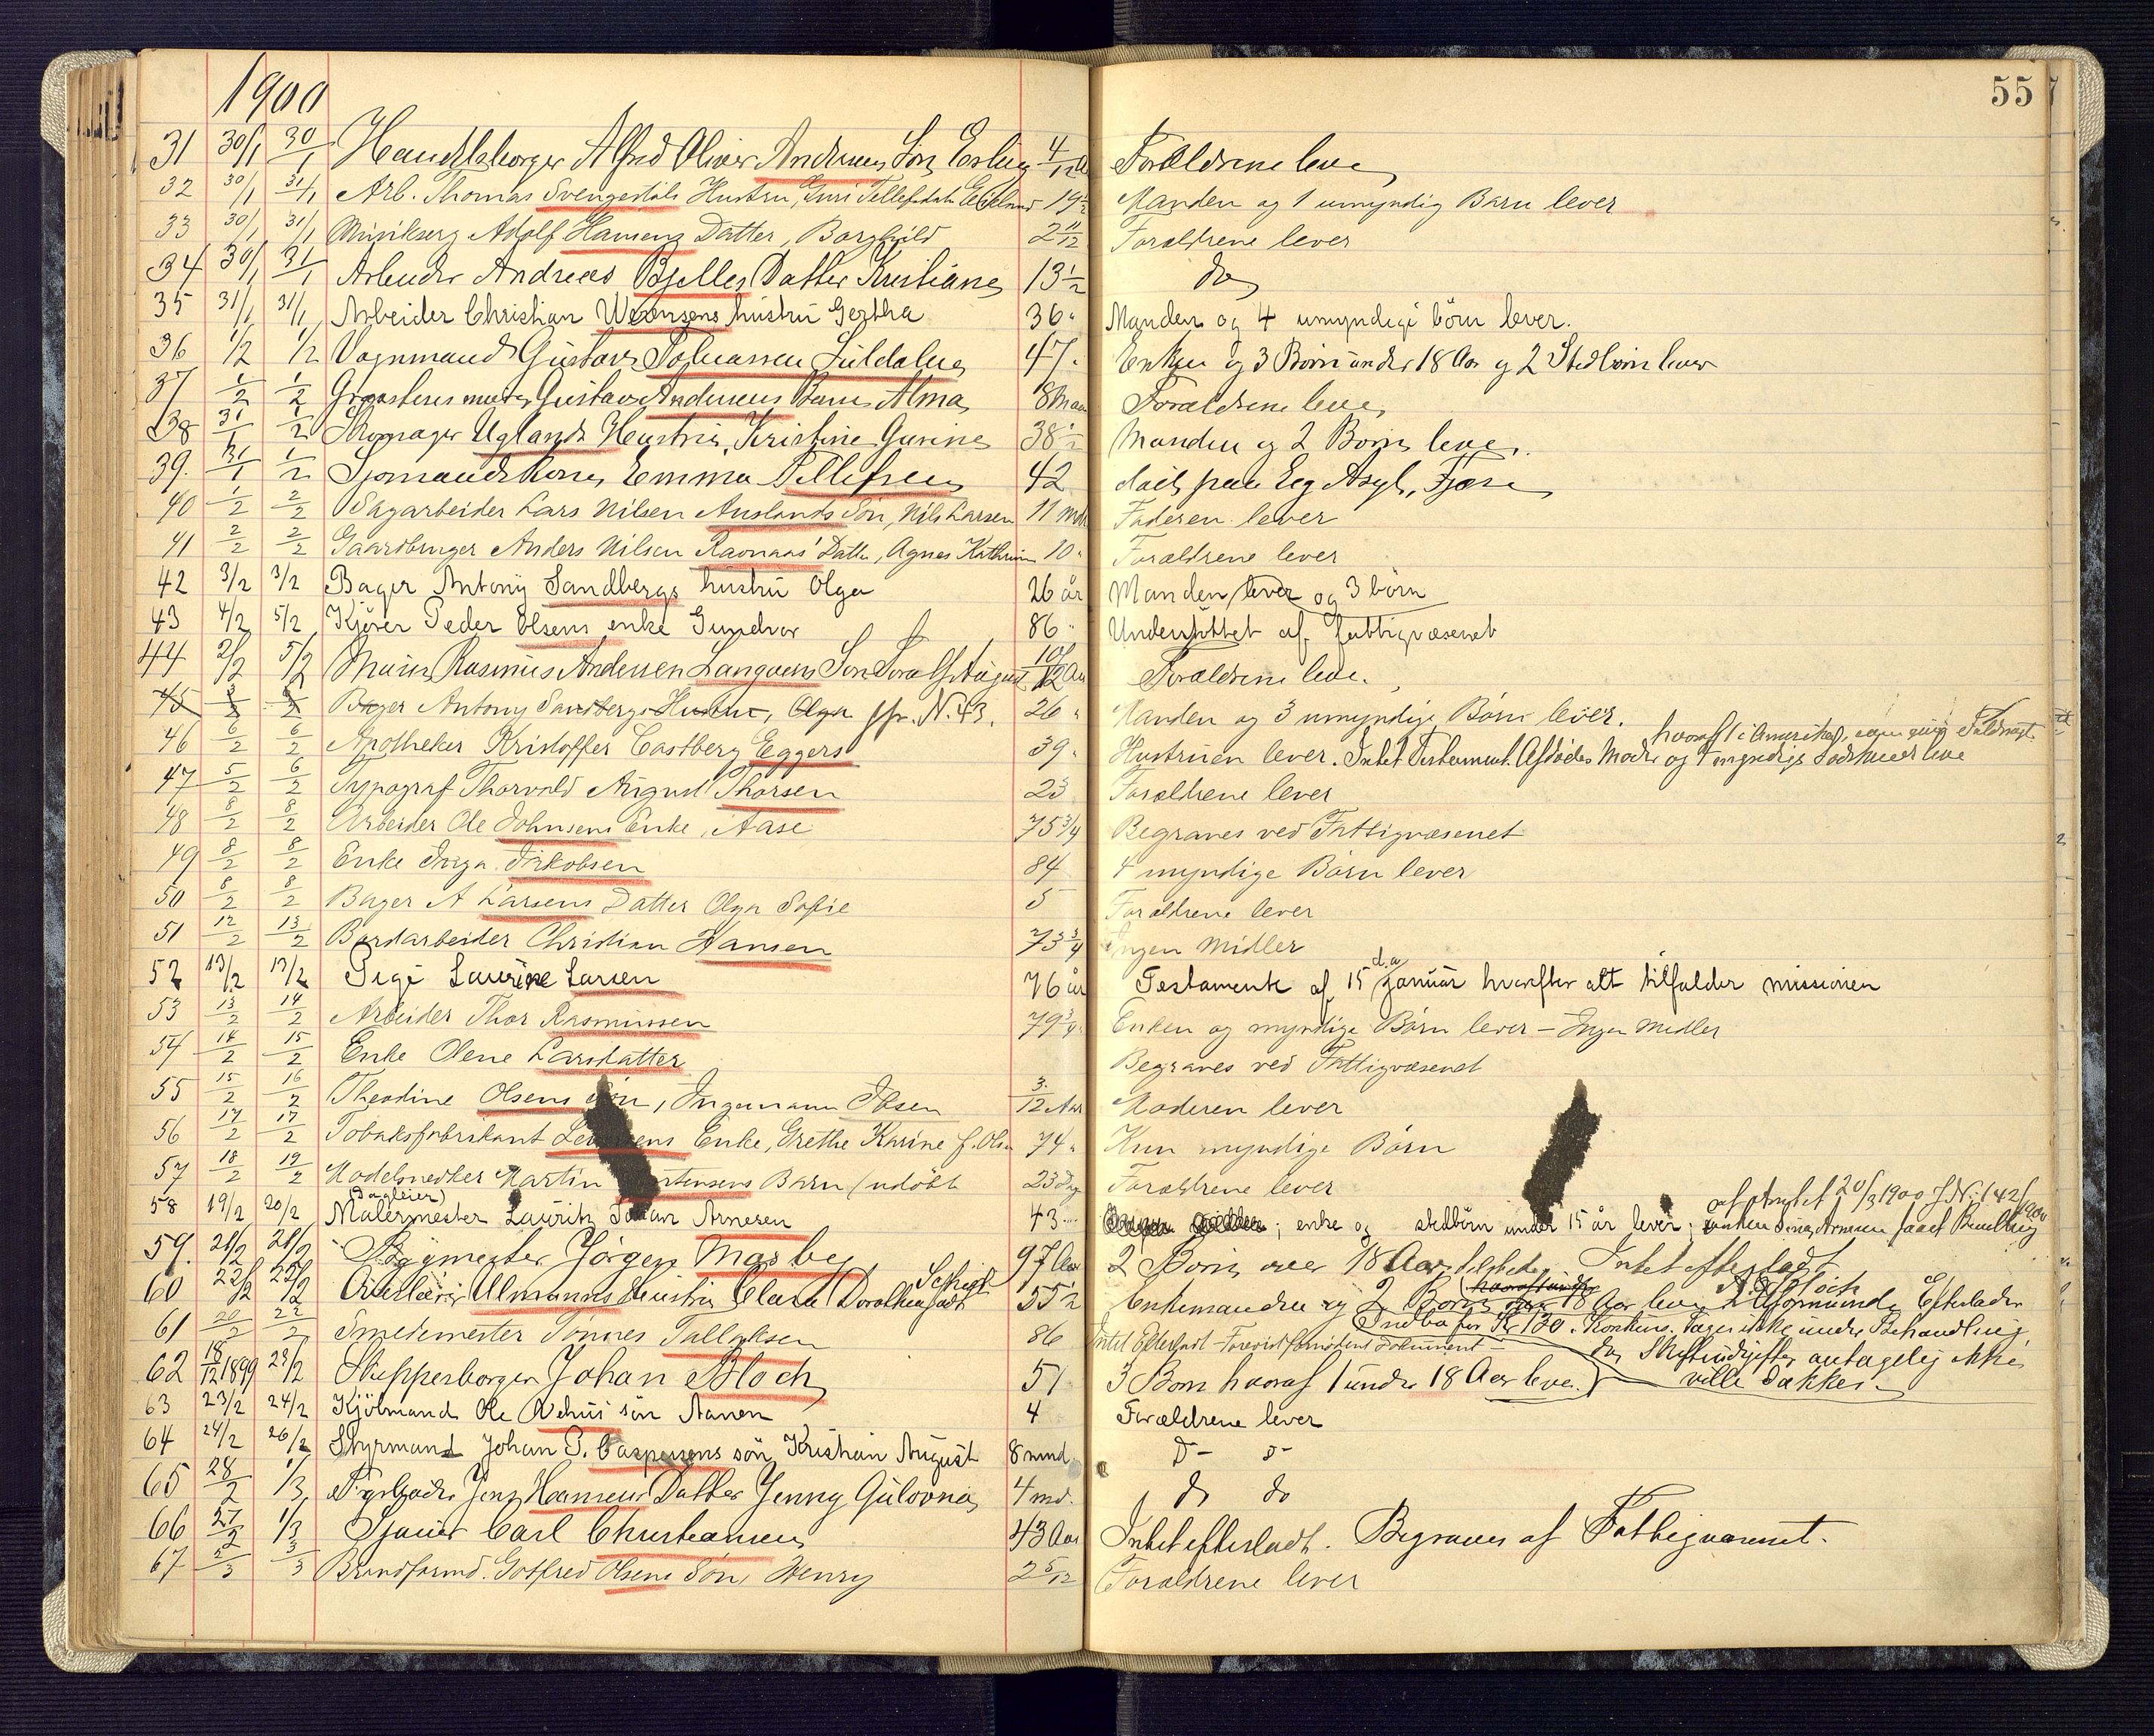 1900
55
31 30/1 30/1 Handelsborger Alfred Oliver Andersens Søn Erling 4/12 Forældrene leve
32 30/1 31/1 Arb. Thomas Svengestøls Hustru, Guri Tellefsdatter 19 1/2 Manden og 1 umyndig Barn lever
33 30/1 31/1 Musikserg Adolf Hansens Datter, Borghild 2 11/12 Forældrene lever
34 30/1 31/1 Arbeider Andreas Bjelles Datter Kristiane 13 1/2 do
35 31/1 31/1 Arbeider Christian hustru Gertha 36 " Manden og 4 umyndige børn lever.
36 1/2 1/2 Vognmand Gustav 47. Enken og 3 Børn under 18 Aar og 2 Stedbørn lever
37 1/2 1/2 Gustav Andersens Barn Alma 8 Maan Forældrene leve,
38 31/1 1/2 Skomager Uglands Hustru, Kristine Gurine 38 1/2 Manden og 2 Børn leve.
39. 31/1 1/2 Sjømandskone Emma Tellefsen 42 død paa Eg Asyl,
40 1/2 2/2 Sagarbeider Lars Nilsen Auslands Søn, Nils Larsen 11 mdr Faderen lever
41 2/2 2/2 Gaardbruger Anders Nilsen Ravnaas' Datter, Agnes Kathrine 10 " Forældrene lever
42 3/2 3/2 Bager Antony Sandbergs hustru Olga 26 år Manden lever og 3 børn
43 4/2 5/2 Kjører Peder Olsens enke Gundvor 86 " Understøttet af fattigvæsenet
44 2/2 5/2 Murer Rasmus Andersen Langaens Søn Toralf August 10/12 Aar Forældrene leve.
45 Bager Antony Sandbergs Hustru, Olga jfr. N. 43. 26 " Manden og 3 umyndige Børn lever.
hvoraf 1 i Amerika,
46 6/2 6/2 Apotheker Kristoffer Castberg Eggers 39 " Hustruen lever. Intet Testament. Afdødes Moder og myndige Sødskende leve
47 5/2 6/2 Typograf Thorvald August Thorsen 23 Forældrene lever
48 8/2 8/2 Arbeider Ole Johnsens Enke, Aase 75 3/4 Begraves ved Fattigvæsenet
49 8/2 8/2 Enke Inga Jakobsen 84 4 myndige Børn lever
50 8/2 8/2 Bager A Larsens Datter Olga Sofie 5 Forældrene lever
51 12/2 13/2 Bordarbeider Christian Hansen 73 3/4 Ingen Midler
52 13/2 13/2 Pige Laurine Larsen 76 år Testamente af 15 januar d.a. hvorefter alt tilfalder missionen
53 13/2 14/2 Arbeider Thor Rasmussen 79 3/4 Enken og myndige Børn lever – Ingen Midler
54 14/2 15/2 Enke Olene Larsdatter Begraves ved Fattigvæsenet
55 15/2 16/2 Theodine Olsens Søn, Ingemann Ibsen 3/12 Aar Moderen lever
56 17/2 17/2 Tobaksfabrikant Enke, Grethe Karine f. Olsen 74 " Kun myndige Børn
57 18/2 19/2 Modelsnedker Martin Barn (udøbt 23 dag Forældrene lever
(Dagleier) 20/3 1900 J N. 142/1900
58 19/2 20/2 Malermester Lauritz Johan Arnesen 43 ; enke og stedbørn under 15 år lever;
59. 21/2 21/2 Bygmester Jørgen Mosby 97 Aar 2 Børn over 18 Aar Intet efterladt
60 22/2 22/2 Ullmanns Hustru Clara Dorothea 55 1/2 Enkemanden og 2 Børn 18 Aar leve
61 20/2 22/2 Smedemester Tønnes Tallaksen 86 Intet Efterladt
Indbo for Kr 130. Konkurs. tages ikke under Behandling,
da Skifteudgifter antagelig ikke
ville dækkes.
62 18/12 1899 23/2 Skipperborger Johan Bloch 51 3 Børn hvoraf 1 under 18 Aar leve.
63 23/2 24/2 Kjølmand Ole søn Aanen 4 Forældrene lever
64 24/2 26/2 Styrmand Johan P. Caspersens søn Kristian August 8 mnd D– o–
65 28/2 1/3 Jens Hansens Datter Jenny Gulovna 4 md. do do
66 27/2 1/3 Sjauer Carl Christiansen 43 Aar Intet efterladt. Begraves af Fattigvæsenet.
67 2/3 3/3 Brandformd. Gotfred Olsens Søn, Henry 2 5/12 Forældrene lever